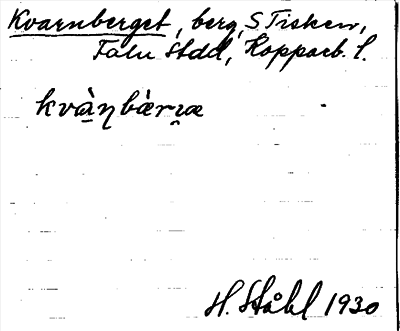 Kvarnberget, berg, S Tisken,
Falu stad, Kopparb. l.
kvà̱ɳbæ̀rɩ̯æ
H. Ståhl 1930